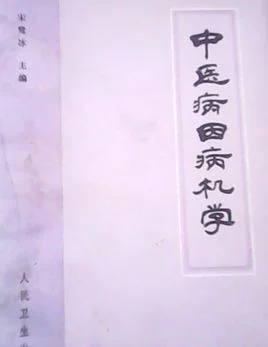 中医病因病机学
宋鹭冰 主编
人民卫生